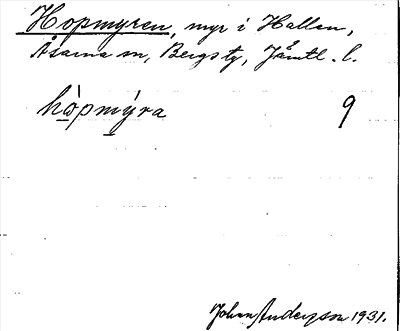 Hopmyren, myr i Hallen,
Åsarna sn, Bergs tg, Jämtl. l.
hò̲pmý̲ra 9
Johan Andersson 1931.